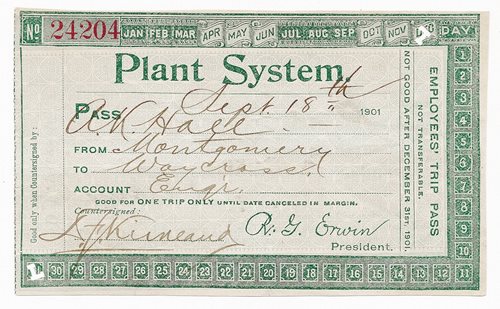 No 24204 JAN FEB MAR APR MAY JUN JUL AUG SEP OCT NOV DEC DAY
Plant System.
Sept. 18th 1901
PASS A.K. Hall
FROM Montgomery
TO Waycross
ACCOUNT Engr.
GOOD FOR ONE TRIP ONLY UNTIL DATE CANCELED IN MARGIN.
Countersigned:
R. G. Erwin
President.
Good only when Countersigned by:
EMPLOYEES' TRIP PASS
NOT TRANSFERABLE
NOT GOOD AFTER DECEMBER 31ST, 1901.
1
2
3
4
5
6
7
8
9
10
11
30 29 28 27 26 25 24 23 22 21 20 19 18 17 16 15 14 13 12